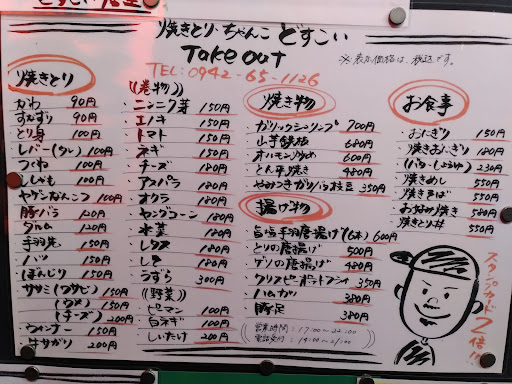 焼きとり・ちゃんこ どすこい
Take out
TEL:0942-65-1126
※表示価格は、税込です。
焼きとり
かわ 90円
すなずり 90円
とり身 100円
レバー(タレ) 100円
つくね 100円
ししゃも 100円
ヤゲンなんこつ 100円
豚バラ 120円
ダルム 120円
手羽先 150円
ハツ 150円
ぼんじり 150円
ササミ(ワサビ) 150円
(ウメ) 150円
(チーズ) 200円
ウィンナー 150円
牛サガリ 200円
((巻物))
ニンニク芽 150円
エノキ 150円
トマト 150円
ネギ 150円
チーズ 180円
アスパラ 180円
オクラ 180円
ヤングコーン 180円
水菜 180円
レタス 180円
しそ 180円
うずら 300円
((野菜))
ピーマン 100円
白ネギ 100円
しいたけ 200円
焼き物
ガーリックシュリンプ 700円
山芋鉄板 680円
ホルモン炒め 600円
とん平焼き 480円
やみつきガリバタ枝豆 350円
揚げ物
旨塩手羽唐揚げ(6本) 600円
とりの唐揚げ 500円
ゲソの唐揚げ 480円
クリスピーポテトフライ 350円
ハムカツ 380円
豚足 380円
営業時間:17:00~22:00
電話受付:14:00~21:00
お食事
おにぎり 150円
焼きおにぎり 180円
(バターしょうゆ) 230円
焼きめし 550円
焼きそば 550円
お好み焼き 580円
焼きとり丼 550円
スタンプカード2倍!!